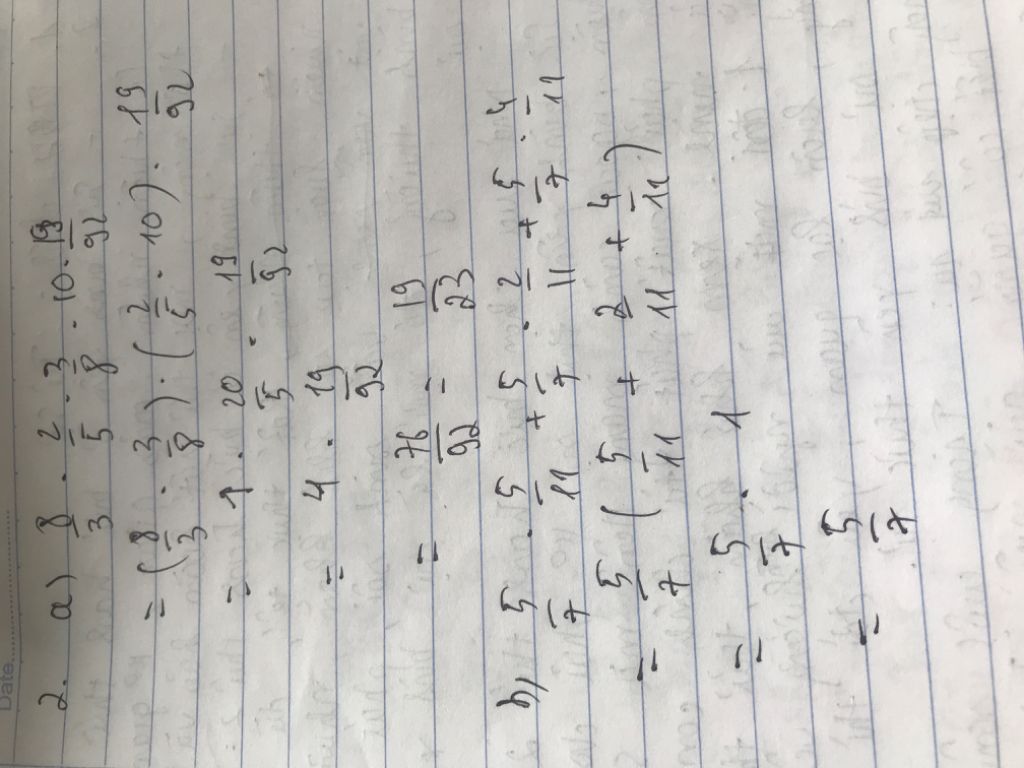 Date
2. a) 8/3 . 2/5 . 3/8 . 10 . 19/92
= (8/3 . 3/8) . (2/5 . 10) . 19/92
= 1 . 20/5 . 19/92
= 4 . 19/92
= 76/92 = 19/23
b, 5/7 . 5/11 + 5/7 . 2/11 + 5/7 . 4/11
= 5/7 (5/11 + 2/11 + 4/11)
= 5/7 . 1
= 5/7